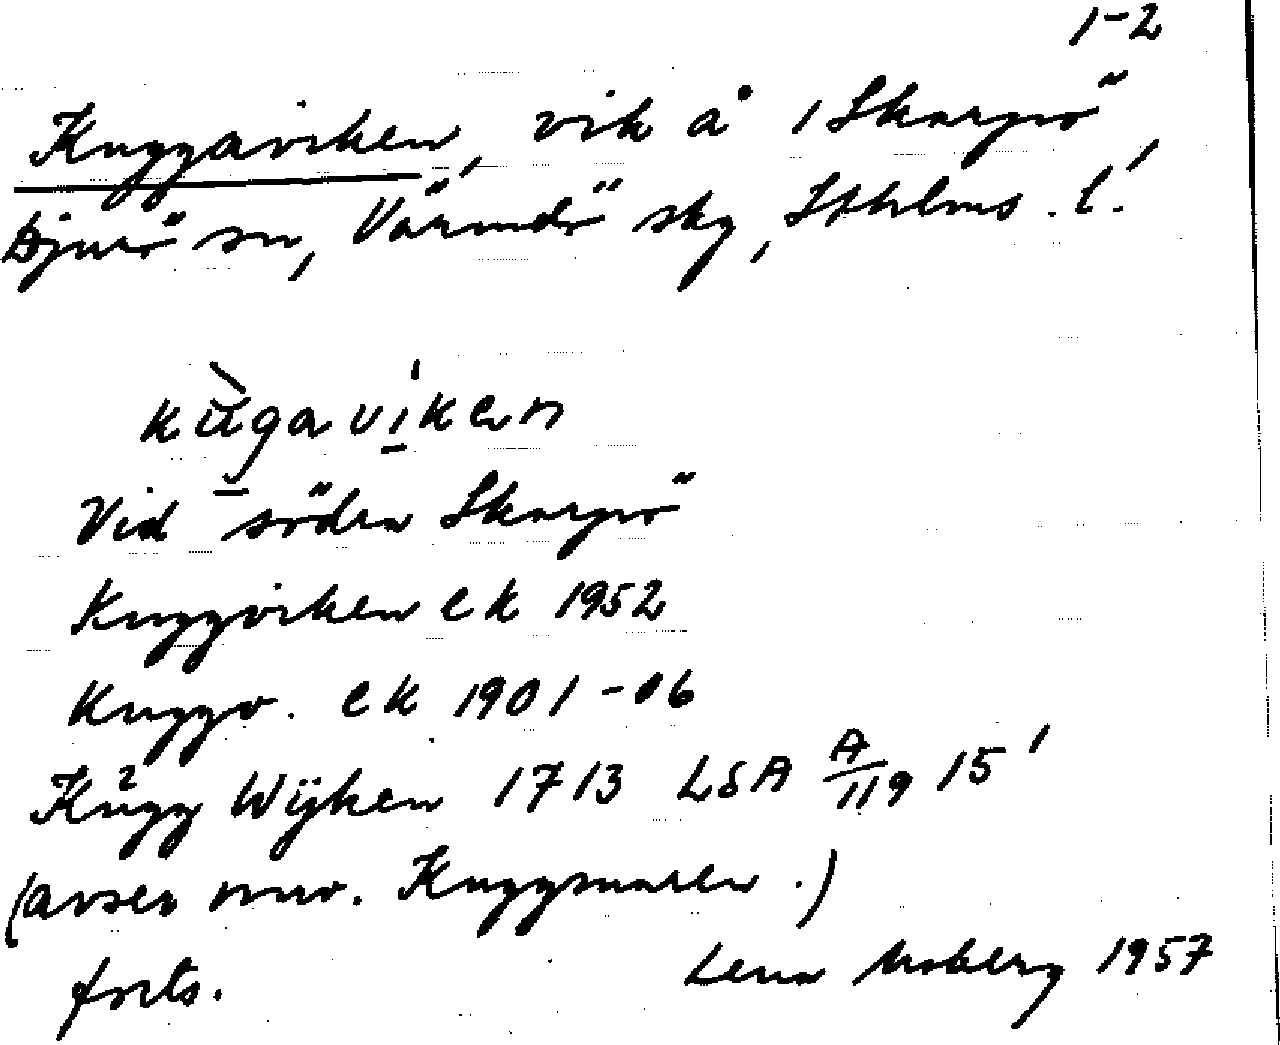 1-2
Kuggaviken, vik å 1 Skarpö,
Djurö sn, Värmdö skg, Sthlms. l.
kùgaviken
Vid södra Skarpö
Kuggviken ek 1952
Kuggv. ek 1901-06
Kŭgg Wijken 1713 LSA A/119 15'
(avser nuv. Kuggmaren.)
forts. Lena Moberg 1957